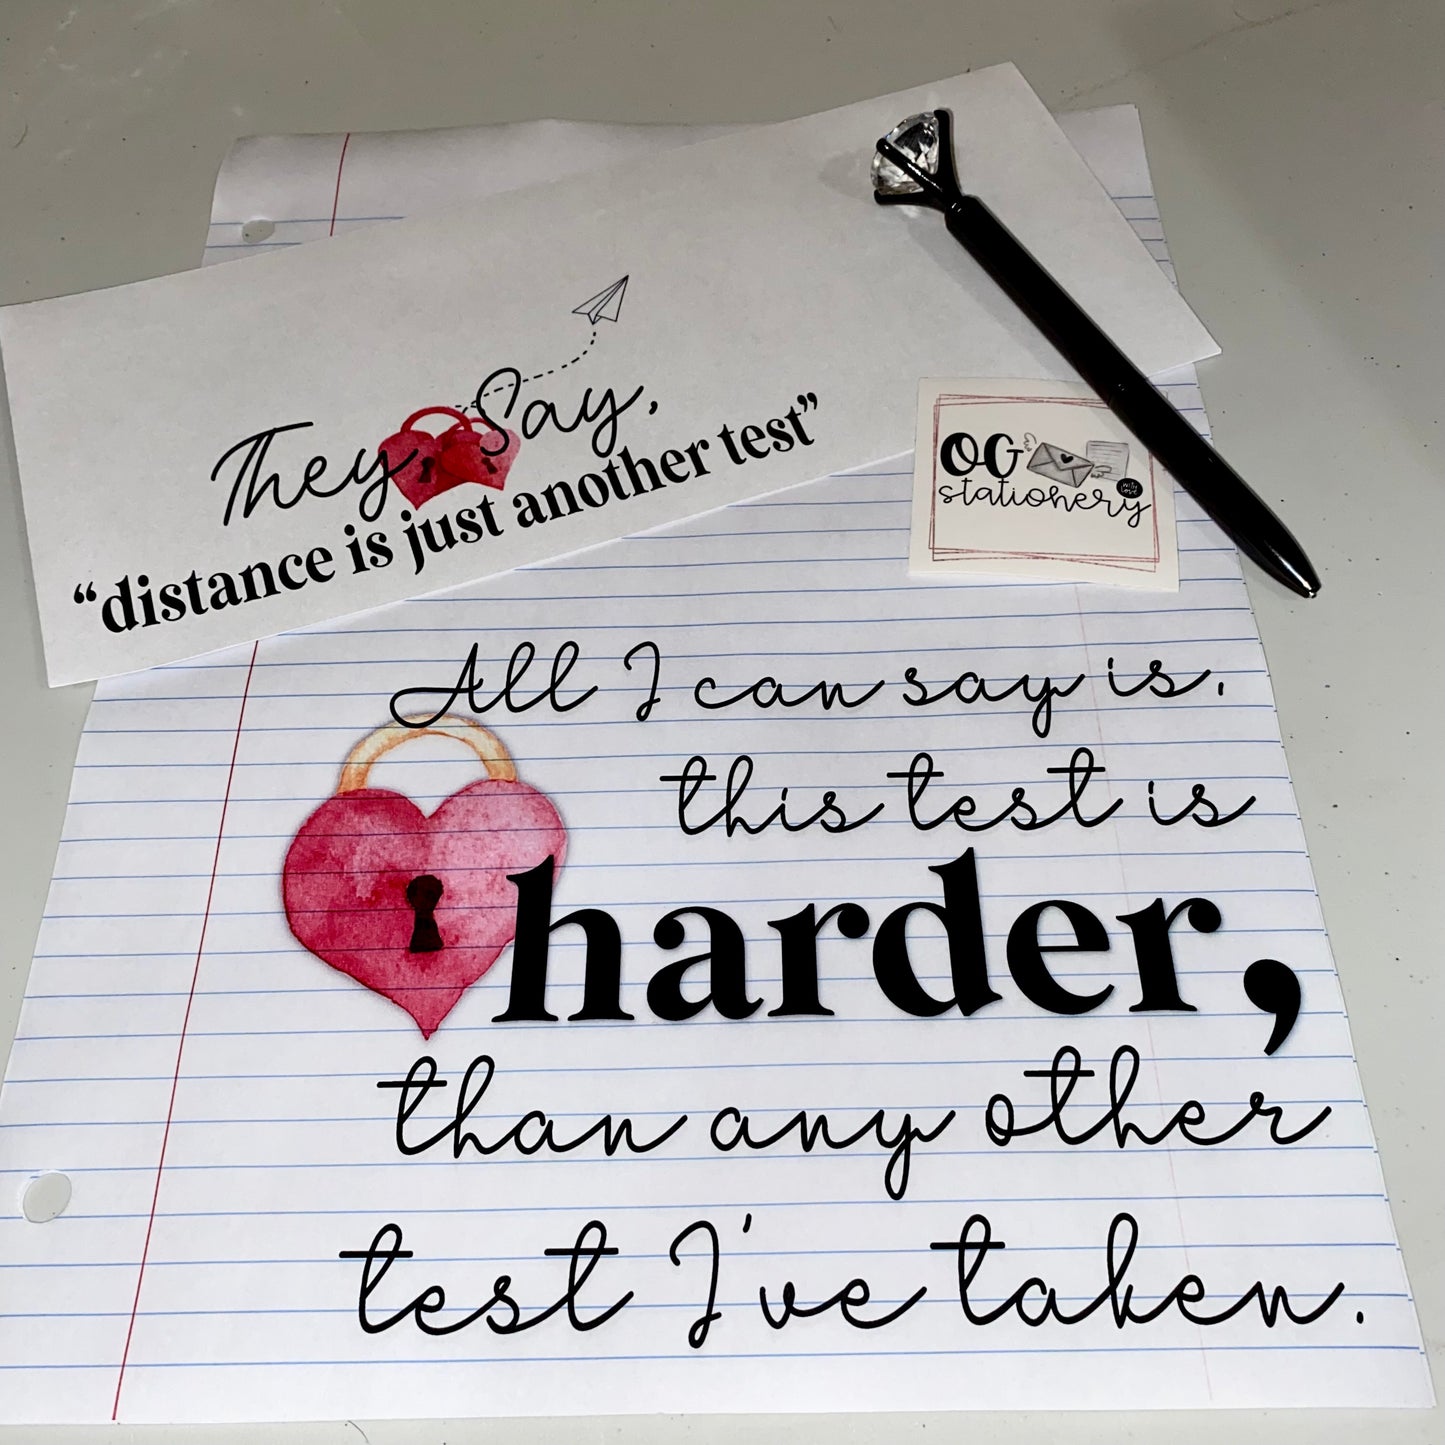 They Say,
“distance is just another test”
OG
stationery
with
love
All I can say is,
this test is
harder,
than any other
test I've taken.